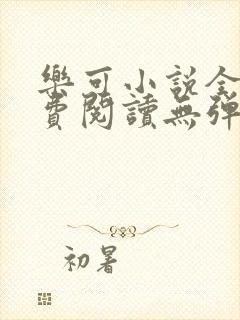 樂可小說全
費閱讀無彈
初暑